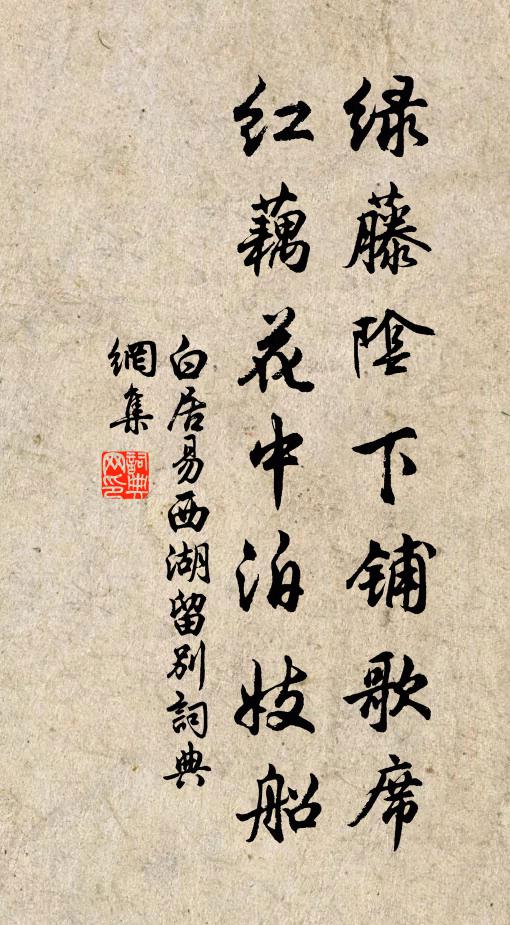 绿藤陰下铺歌席
红藕花中泊妓船
白居易西湖留别詞典
網集
詞典
网印